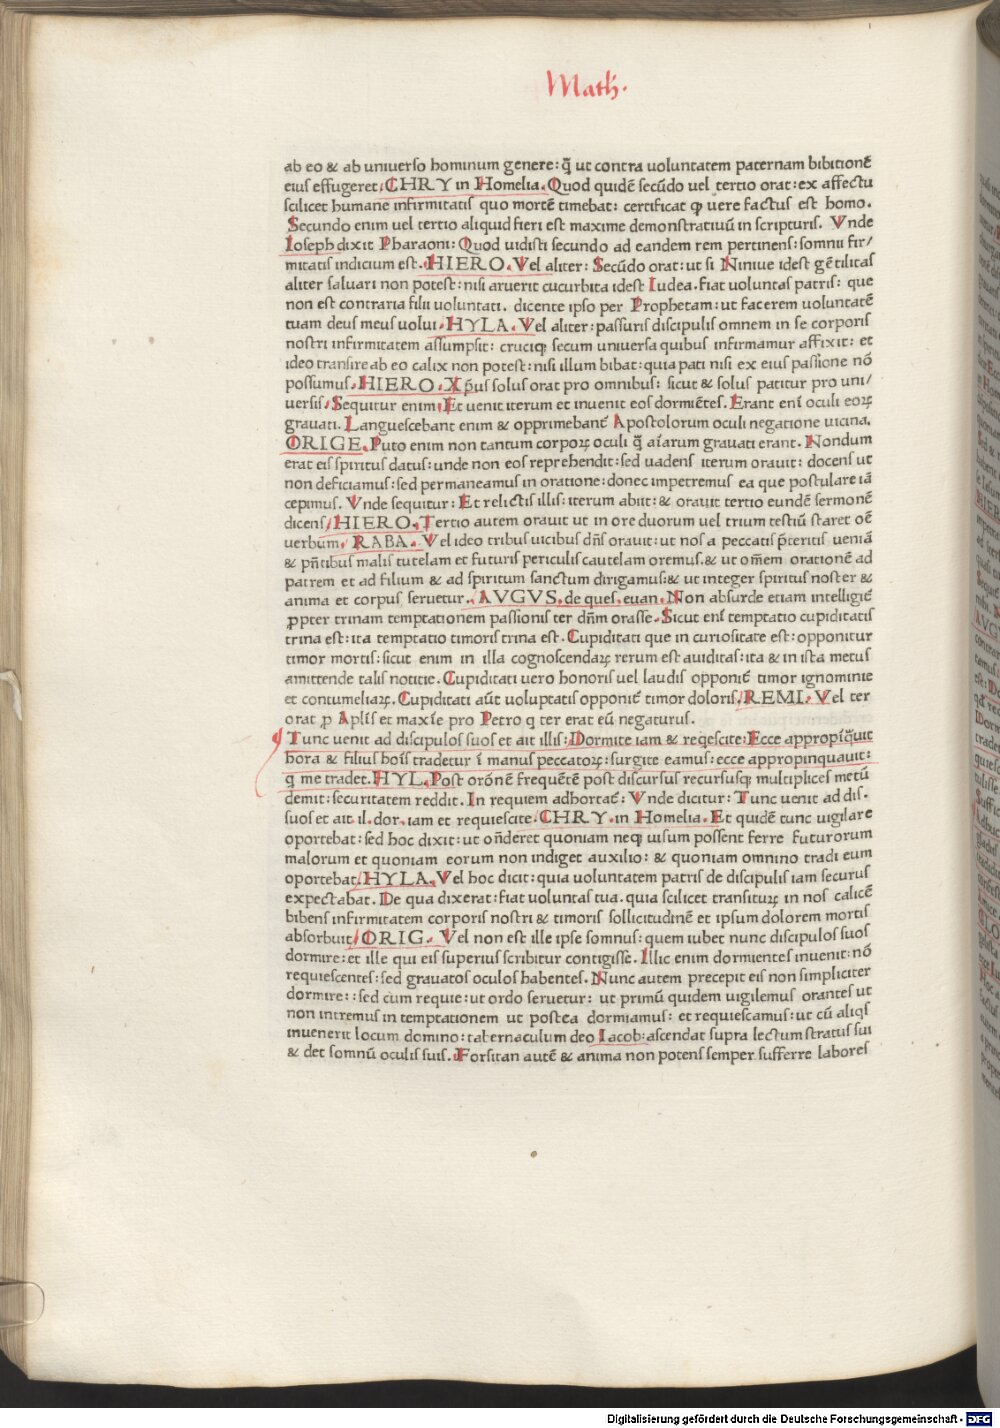 Math.
ab eo & ab uniuerso hominum genere: q̃ ut contra uoluntatem paternam bibitionē
eius effugeret. CHRY in Homelia. Quod quidē secūdo uel tertio orat: ex affectu
scilicet humane infirmitatis quo mortē timebat: certificat ꝙ uere factus est homo.
Secundo enim uel tertio aliquid fieri est maxime demonstratiuū in scripturis. Vnde
Ioseph dixit Pharaoni: Quod uidisti secundo ad eandem rem pertinens: somnii fir/
mitatis indicium est. HIERO. Vel aliter: Secūdo orat: ut si Niniue idest gētilitas
aliter saluari non potest: nisi aruerit cucurbita idest Iudea. Fiat uoluntas patris: que
non est contraria filii uoluntati. dicente ipso per Prophetam: ut facerem uoluntatē
tuam deus meus uolui. HYLA. Vel aliter: passuris discipulis omnem in se corporis
nostri infirmitatem assumpsit: cruciq; secum uniuersa quibus infirmamur affixit: et
ideo transire ab eo calix non potest: nisi illum bibat: quia pati nisi ex eius passione nō
possumus. HIERO. Xp̄us solus orat pro omnibus: sicut & solus patitur pro uni/
uersis. Sequitur enim. Et uenit iterum et inuenit eos dormiētes. Erant enī oculi eoꝝ
grauati. Languescebant enim & opprimebant̃ Apostolorum oculi negatione uicina.
ORIGE. Puto enim non tantum corpoꝝ oculi q̃ aīarum grauati erant. Nondum
erat eis spiritus datus: unde non eos reprehendit: sed uadens iterum orauit: docens ut
non deficiamus: sed permaneamus in oratione: donec impetremus ea que postulare iā
cepimus. Vnde sequitur: Et relictis illis: iterum abiit: & orauit tertio eundē sermonē
dicens. HIERO. Tertio autem orauit ut in ore duorum uel trium testiū staret oē
uerbum. RABA. Vel ideo tribus uicibus dñs orauit: ut nos a peccatis p̄teritis ueniā
& pñtibus malis tutelam et futuris periculis cautelam oremus. & ut om̄em orationē ad
patrem et ad filium & ad spiritum sanctum dirigamus: & ut integer spiritus noster &
anima et corpus seruetur. AVGVS. de ques. euan. Non absurde etiam intelligit̃
ꝓpter trinam temptationem passionis ter dñm orasse. Sicut enī temptatio cupiditatis
trina est: ita temptatio timoris trina est. Cupiditati que in curiositate est: opponitur
timor mortis: sicut enim in illa cognoscendaꝝ rerum est auiditas: ita & in ista metus
amittende talis notitie. Cupiditati uero honoris uel laudis opponit̃ timor ignominie
et contumeliaꝝ. Cupiditati aūt uoluptatis opponit̃ timor doloris. REMI. Vel ter
orat ꝓ Aplīs et maxīe pro Petro q ter erat eū negaturus.
Tunc uenit ad discipulos suos et ait illis: Dormite iam & reqescite: Ecce appropīq̃uit
hora & filius hoīs tradetur ī manus peccatoꝝ: surgite eamus: ecce appropinquauit:
q̇ me tradet. HYL. Post orōnē frequētē post discursus recursusq; multiplices metū
demit: securitatem reddit. In requiem adhortat̃: Vnde dicitur: Tunc uenit ad dis.
suos et ait il. dor. iam et requiescite. CHRY. in Homelia. Et quidē tunc uigilare
oportebat: sed hoc dixit: ut oñderet quoniam neq; uisum possent ferre futurorum
malorum et quoniam eorum non indiget auxilio: & quoniam omnino tradi eum
oportebat. HYLA. Vel hoc dicit: quia uoluntatem patris de discipulis iam securus
expectabat. De qua dixerat: fiat uoluntas tua. quia scilicet transituꝝ in nos calicē
bibens infirmitatem corporis nostri & timoris sollicitudinē et ipsum dolorem mortis
absorbuit. ORIG. Vel non est ille ipse somnus: quem iubet nunc discipulos suos
dormire: et ille qui eis superius scribitur contigisse. Illic enim dormientes inuenit: nō
requiescentes: sed grauatos oculos habentes. Nunc autem precepit eis non simpliciter
dormire: : sed cum requie: ut ordo seruetur: ut primū quidem uigilemus orantes ut
non intremus in temptationem ut postea dormiamus: et requiescamus: ut cū aliqs
inuenerit locum domino: tabernaculum deo Iacob: ascendat supra lectum stratus sui
& det somnū oculis suis. Forsitan autē & anima non potens semper sufferre labores
Digitalisierung gefördert durch die Deutsche Forschungsgemeinschaft - DFG